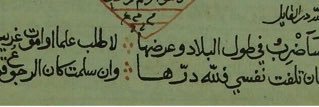 لله در القايل
سأضرب في طول البلاد وعرضها لاطلب علما او اموت غريب
فان تلفت نفسي فلله درها وان سلمت كان الرجوع